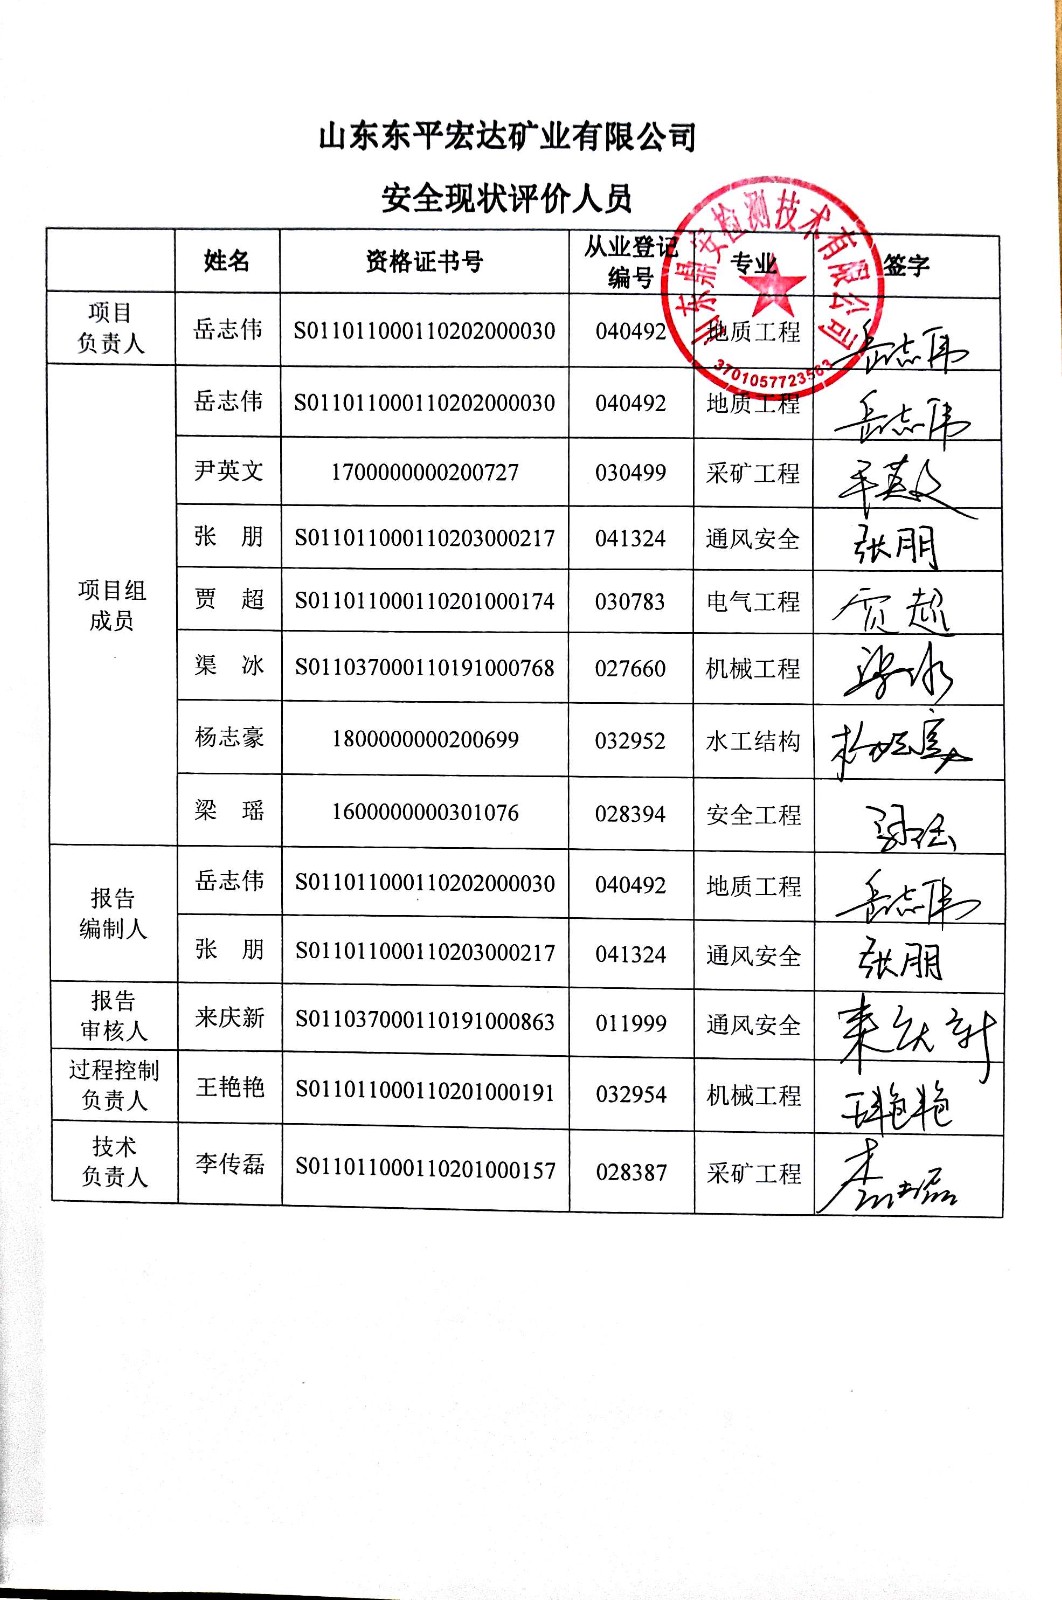 山东东平宏达矿业有限公司
安全现状评价人员
姓名 资格证书号 从业登记编号 专业 签字
山东鼎安检测技术有限公司
3701057723563
项目负责人 岳志伟 S011011000110202000030 040492 地质工程 岳志伟
项目组成员 岳志伟 S011011000110202000030 040492 地质工程 岳志伟
尹英文 1700000000200727 030499 采矿工程 尹英文
张 朋 S011011000110203000217 041324 通风安全 张朋
贾 超 S011011000110201000174 030783 电气工程 贾超
渠 冰 S011037000110191000768 027660 机械工程 渠冰
杨志豪 1800000000200699 032952 水工结构 杨志豪
梁 瑶 1600000000301076 028394 安全工程
报告编制人 岳志伟 S011011000110202000030 040492 地质工程 岳志伟
张 朋 S011011000110203000217 041324 通风安全 张朋
报告审核人 来庆新 S011037000110191000863 011999 通风安全 来庆新
过程控制负责人 王艳艳 S011011000110201000191 032954 机械工程 王艳艳
技术负责人 李传磊 S011011000110201000157 028387 采矿工程 李传磊